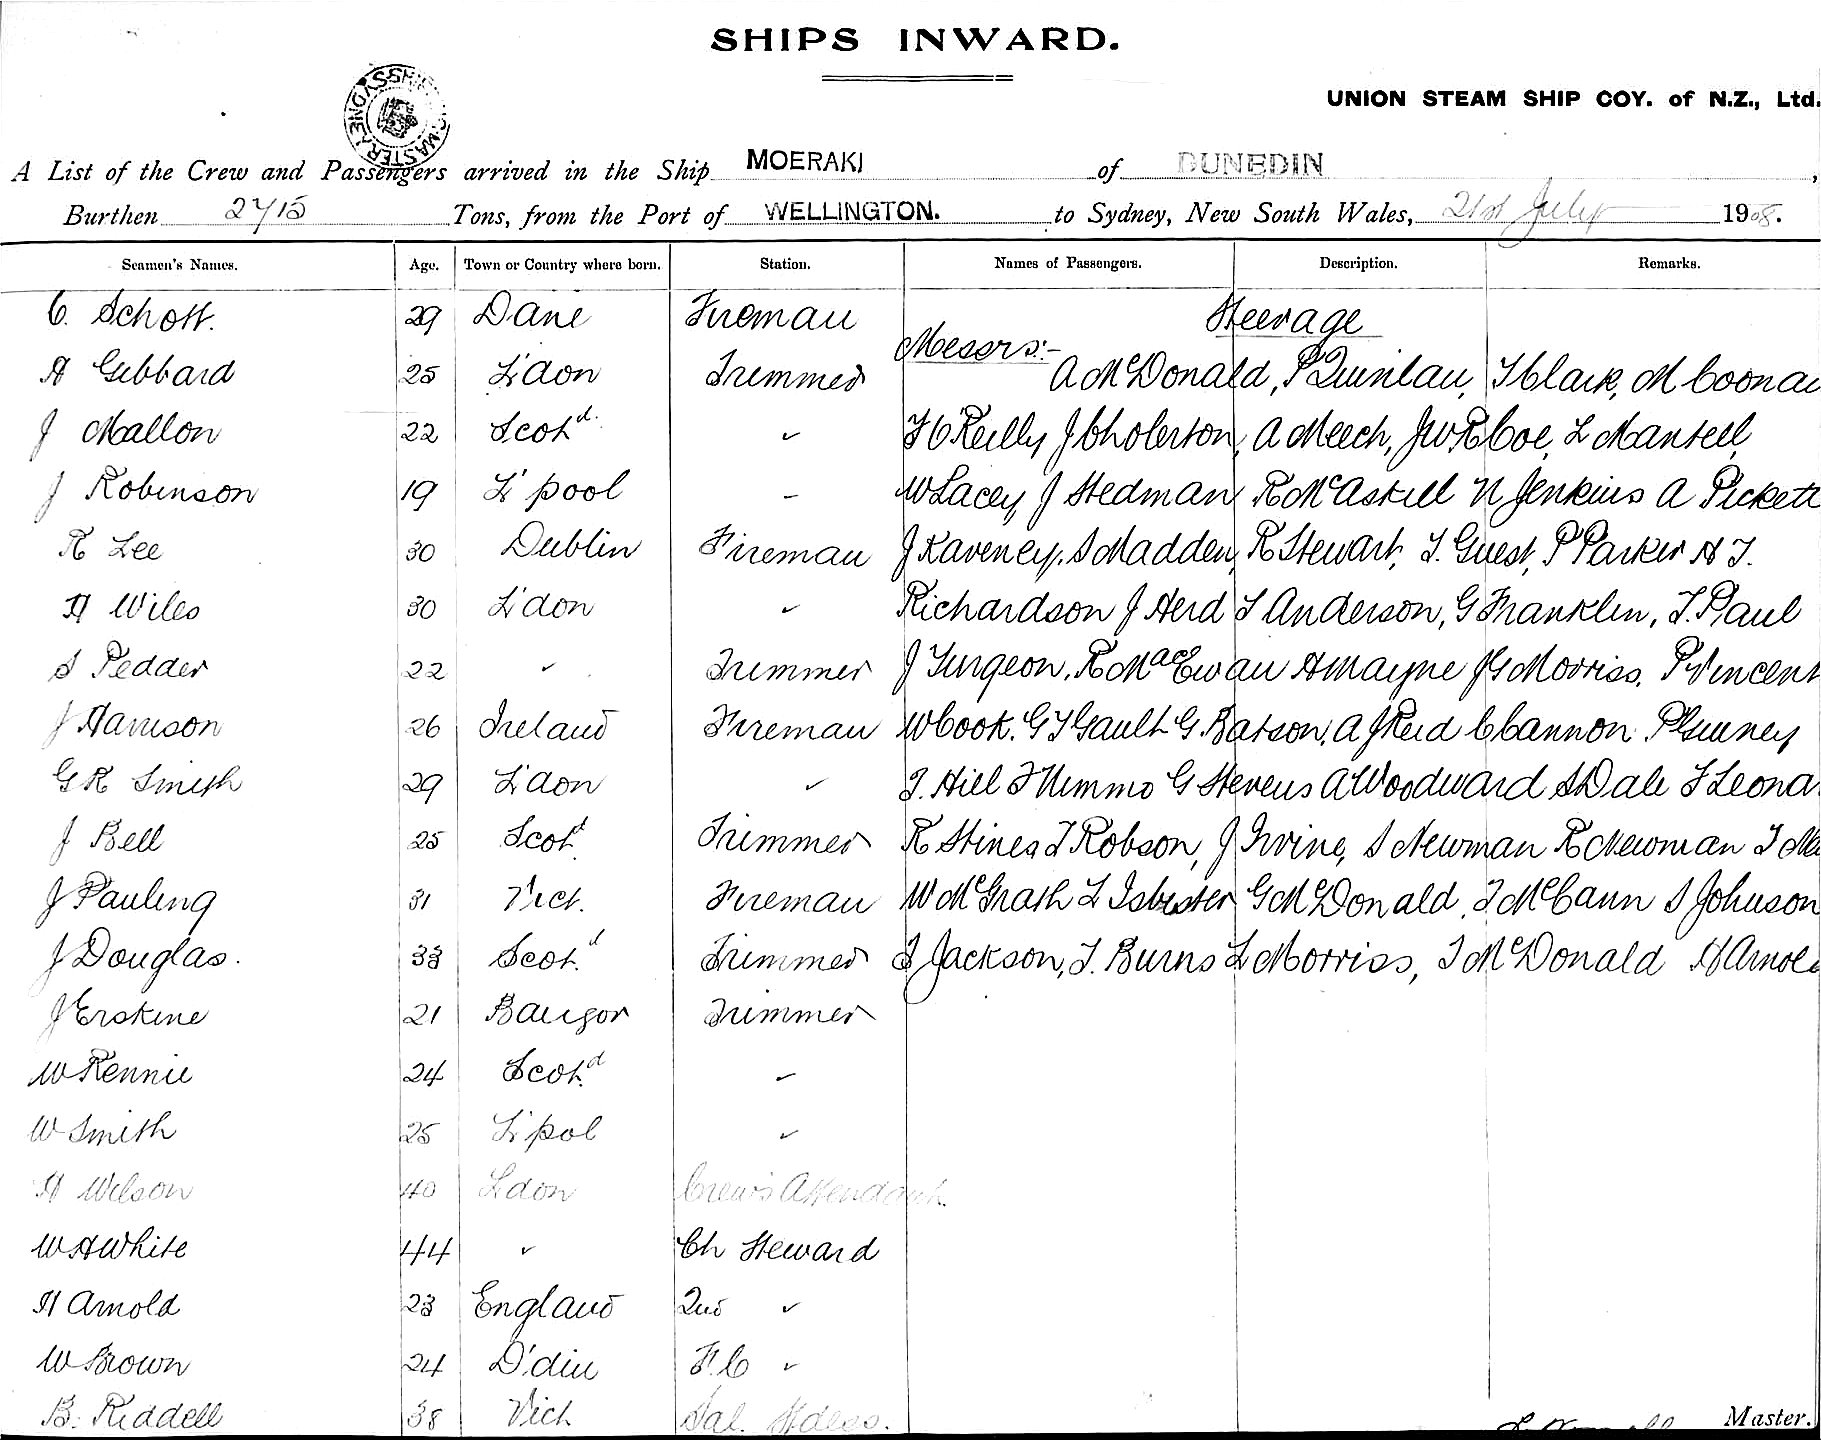 SHIPS INWARD.
UNION STEAM SHIP COY. of N.Z., Ltd.
A List of the Crew and Passengers arrived in the Ship MOERAKI of DUNEDIN,
Burthen 2715 Tons, from the Port of WELLINGTON. to Sydney, New South Wales, 21st July 1908.
Seamen's Names. Age. Town or Country where born. Station. Names of Passengers. Description. Remarks.
C. Schott. 29 Dane Fireman Steerage
Messrs:-
H Gebbard 25 L'don Trimmer A McDonald, P Quinlau, T Clark, M Coona
J Mallon 22 Scotd. " F O'Reilly J Cholerton, A Meech, J W R Coe, L Mantell,
J Robinson 19 L'pool " W Lacey J Stedman R McAskill N Jenkins A Pickett
R Lee 30 Dublin Fireman J Kaveney, S Madden, R Stewart, T. Guest, P Parker H T.
H Wiles 30 L'don " Richardson J Herd T Anderson, G Franklin, T. Paul
S Pedder 22 " Trimmer J Turgeon, R MacEwan H Mayne J G Morriss. P Vincent
J Harrison 26 Ireland Fireman W Cook. G T Gault G. Batson, A J Reid C Cannon
G R Smith 29 L'don " T. Hill T Nimmo G Stevens A Woodward S Dale T Leona
J Bell 25 Scotd Trimmer R Hines T Robson, J Irvine, S Newman R Newman T
J Pauling 31 Vict. Fireman W McGrath L Isbister G McDonald, T McCann S Johnson
J Douglas. 33 Scotd Trimmer T Jackson, T. Burns L Morriss, T McDonald H Arnol
J Erskine 21 Bangor Trimmer
W Rennie 24 Scotd "
W Smith 25 L'pol "
H Wilson 40 L'don Crew's Attendant.
W H White 44 " Ch Steward
H Arnold 23 England 2nd "
W Brown 24 D'din F.C "
B. Riddell 38 Vict Sal. Stdess.
Master.